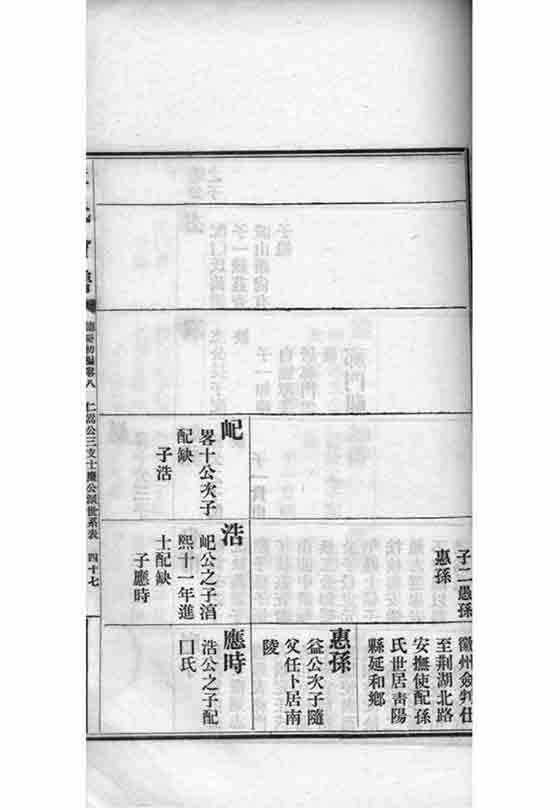 子二愚孫
惠孫
徽州僉判仕
至荆湖北路
安撫使配孫
氏世居青陽
縣延和鄉
惠孫
益公次子隨
父任卜居南
陵
屺
畧十公次子
配缺
子浩
浩
屺公之子淳
熙十一年進
士配缺
子應時
應時
浩公之子配
囗氏
卷八
仁 公三支士慶公派世系表
四十七